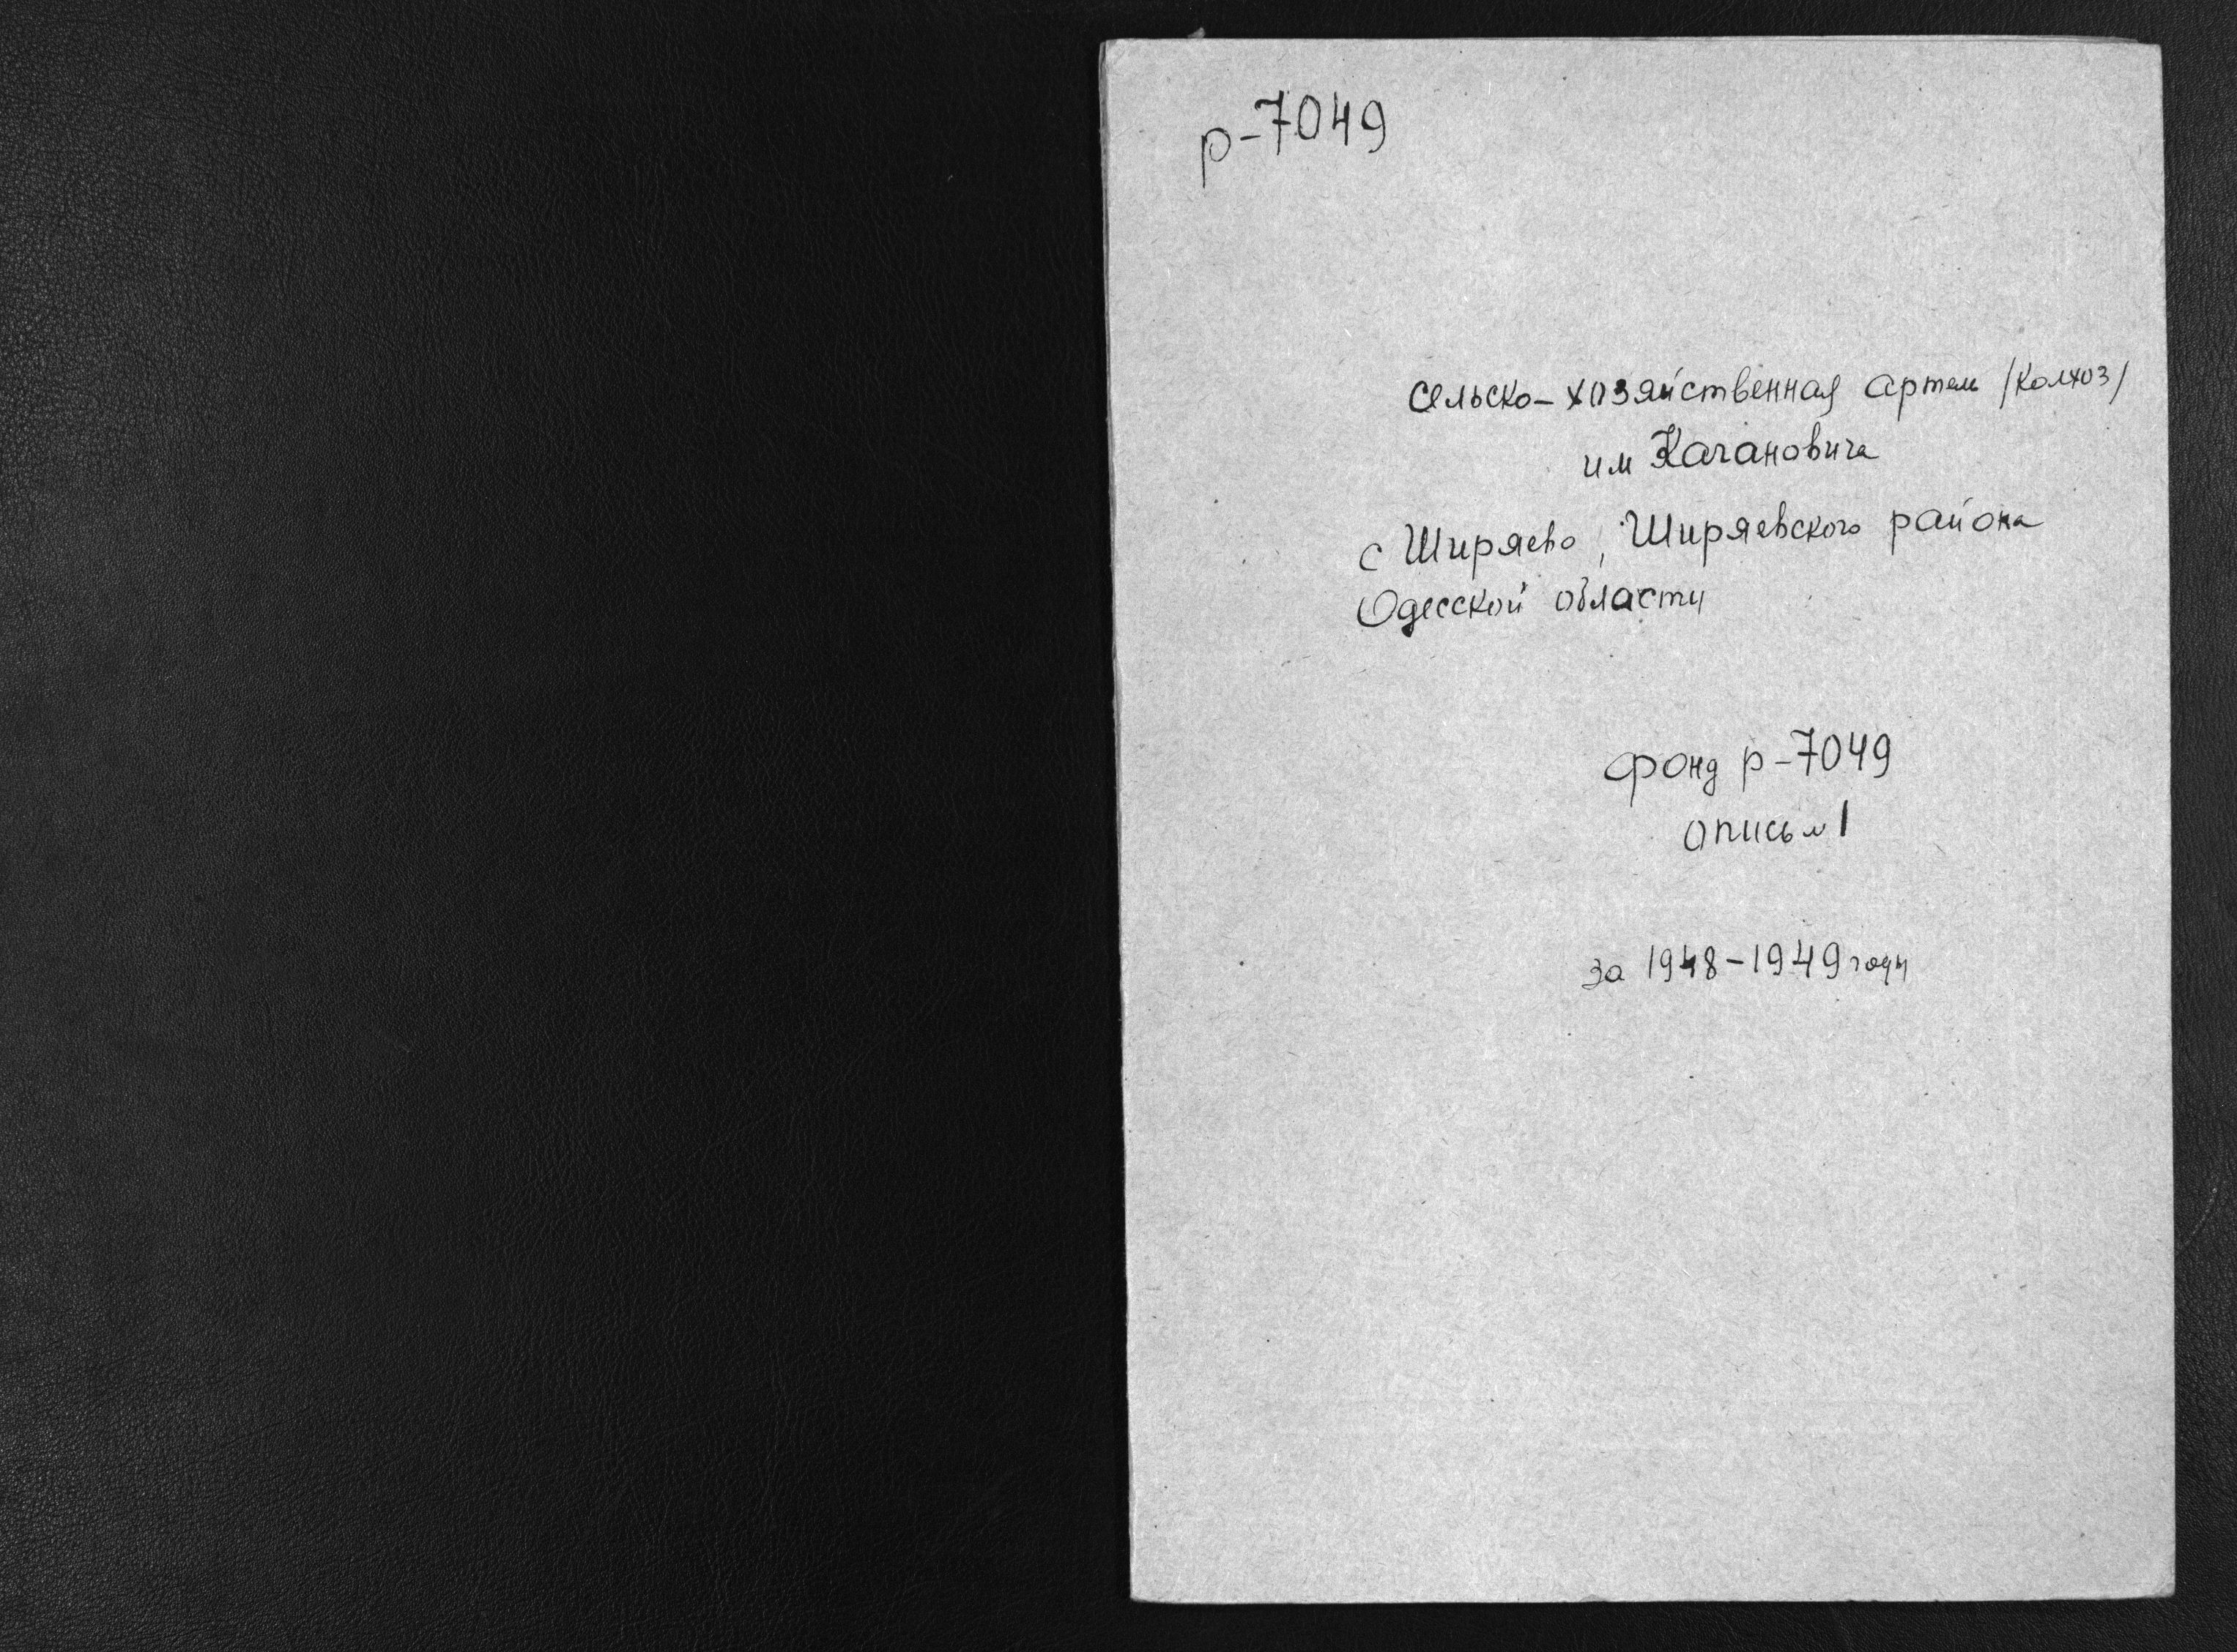 р-7049
Сельско-хозяйственная артель /колхоз/
им Кагановича
с Ширяево, Ширяевского района
Одесской области
Фонд р-7049
опись № 1
за 1948-1949 годы